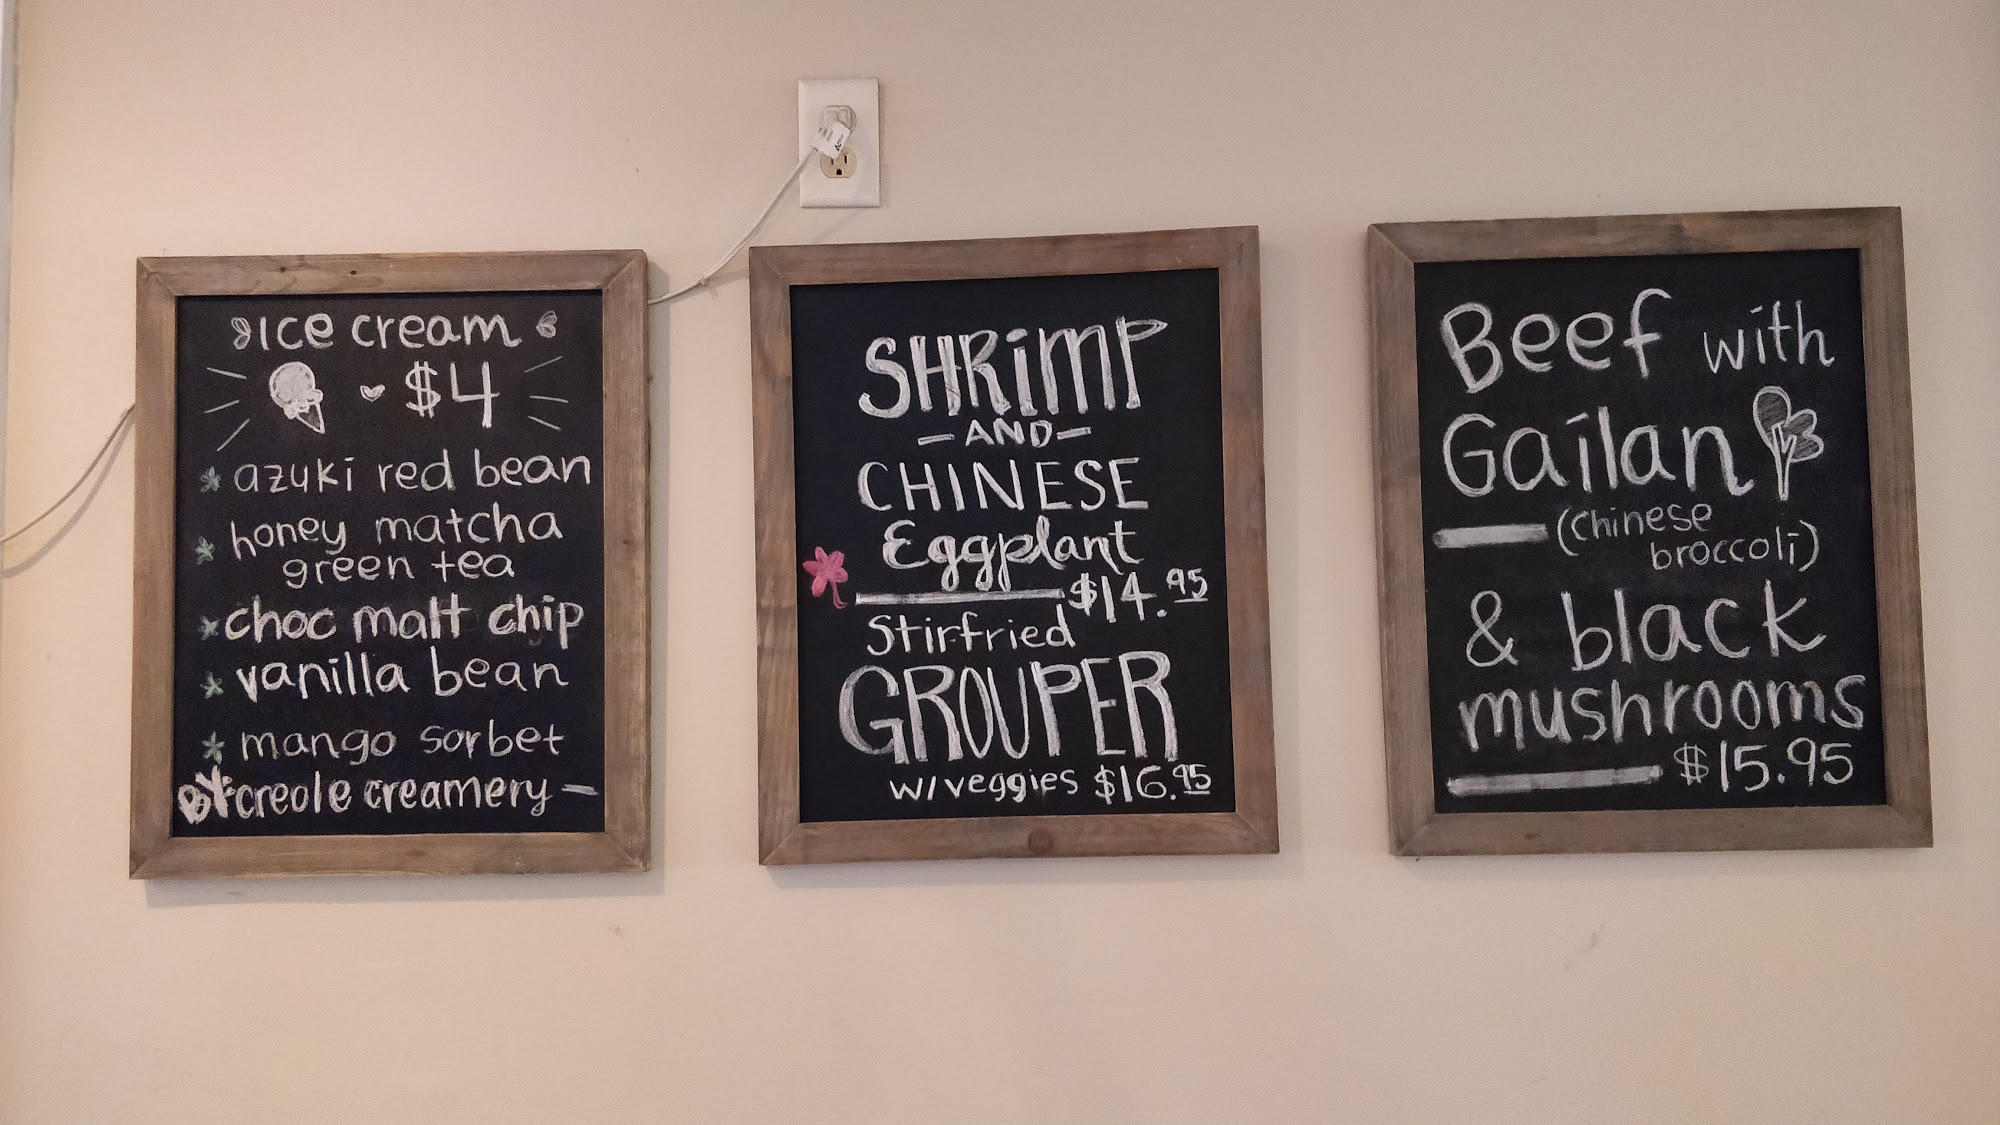 Ice cream
$4
azuki red bean
honey matcha
green tea
choc malt chip
vanilla bean
mango sorbet
BY: creole creamery –
SHRiMP
– AND –
CHINESE
Eggplant
$14.95
Stirfried
GROUPER
w/veggies $16.95
Beef with
Gailan
(Chinese
broccoli)
& black
mushrooms
$15.95